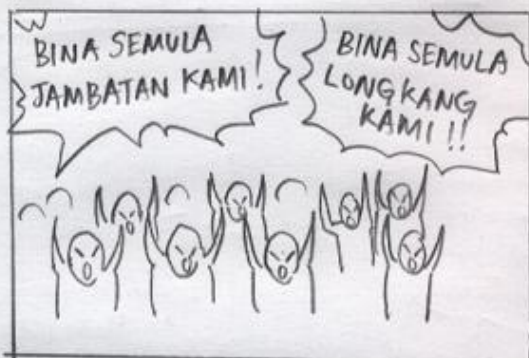 BINA SEMULA
JAMBATAN KAMI!
BINA SEMULA
LONGKANG
KAMI!!